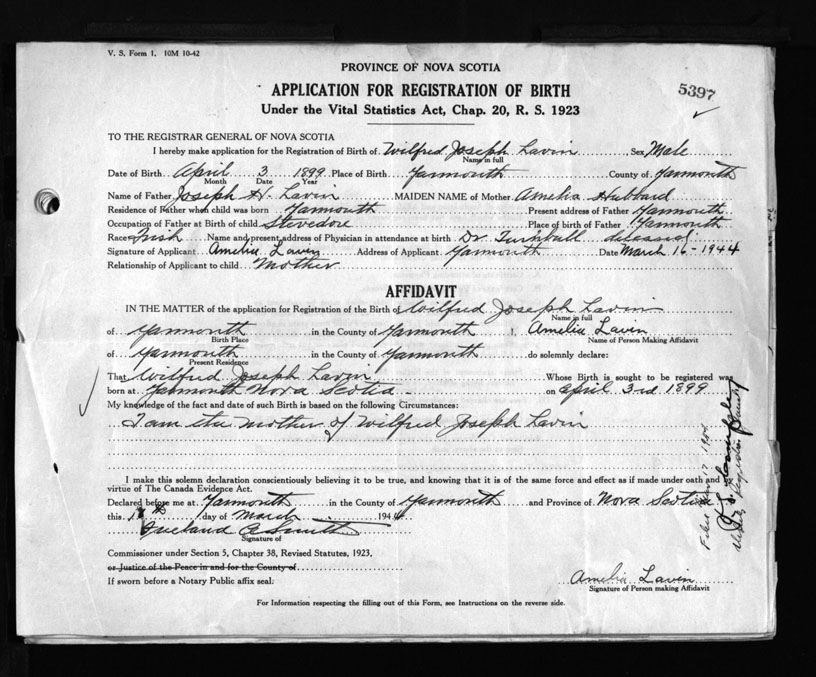 V. S. Form 1. 10M 10-42
PROVINCE OF NOVA SCOTIA
5397
APPLICATION FOR REGISTRATION OF BIRTH
Under the Vital Statistics Act, Chap. 20, R. S. 1923
TO THE REGISTRAR GENERAL OF NOVA SCOTIA
I hereby make application for the Registration of Birth of Wilfred Joseph Lavin, Sex Male
Name in full
Date of Birth April 3 1899 Place of Birth Yarmouth County of Yarmouth
Month Date Year
Name of Father Joseph H. Lavin MAIDEN NAME of Mother Amelia Hubbard
Residence of Father when child was born Yarmouth Present address of Father Yarmouth
Occupation of Father at Birth of child Stevedore Place of birth of Father Yarmouth
Race Irish Name and present address of Physician in attendance at birth Dr Turnbull deceased
Signature of Applicant Amelia Lavin Address of Applicant Yarmouth Date March 16-1944
Relationship of Applicant to child Mother
AFFIDAVIT
IN THE MATTER of the application for Registration of the Birth of Wilfred Joseph Lavin
Name in full
of Yarmouth in the County of Yarmouth I, Amelia Lavin
Birth Place Name of Person Making Affidavit
of Yarmouth in the County of Yarmouth do solemnly declare:
Present Residence
That Wilfred Joseph Lavin Whose Birth is sought to be registered was
born at Yarmouth Nova Scotia on April 3rd 1899
My knowledge of the fact and date of such Birth is based on the following Circumstances:
I am the mother of Wilfred Joseph Lavin
I make this solemn declaration conscientiously believing it to be true, and knowing that it is of the same force and effect as if made under oath and
virtue of The Canada Evidence Act.
Declared before me at Yarmouth in the County of Yarmouth and Province of Nova Scotia
this day of March 1944
Signature of
Commissioner under Section 5, Chapter 38, Revised Statutes, 1923,
or Justice of the Peace in and for the County of
If sworn before a Notary Public affix seal.
Amelia Lavin
Signature of Person making Affidavit
For Information respecting the filling out of this Form, see Instructions on the reverse side.